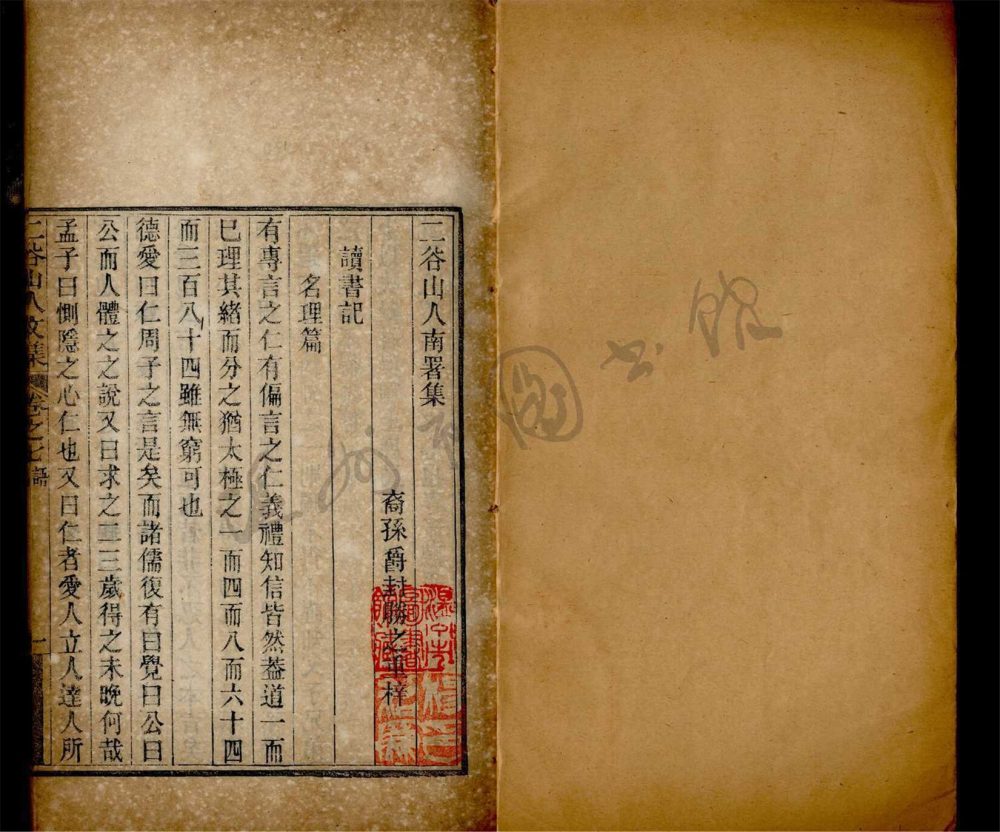 二谷山人南署集
裔孫爵封勝之重梓
讀書記
名理篇
有專言之仁有偏言之仁義禮知信皆然葢道一而
已理其緒而分之猶太極之一而四而八而六十四
而三百八十四雖無窮可也
德愛曰仁周子之言是矣而諸儒復有曰覺曰公曰
公而人體之之說又曰求之二三歲得之未晚何哉
孟子曰惻隱之心仁也又曰仁者愛人立人達人所
二谷山人文集 卷之七 語 一
州 圖書館